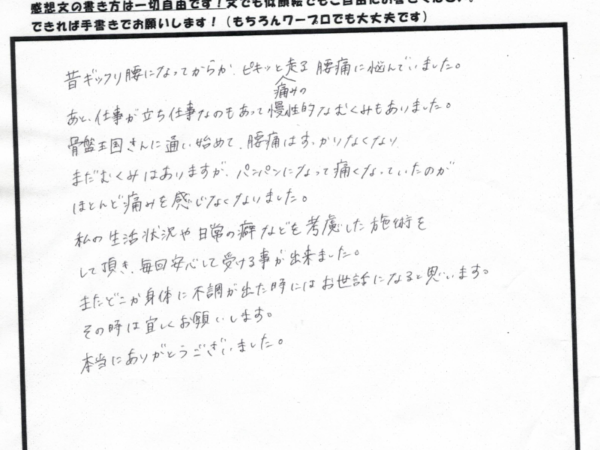 感想文の書き方は一切自由です！文でも似顔絵でもご自由にお書きください。
できれば手書きでお願いします！（もちろんワープロでも大丈夫です）
昔ギックリ腰になってからか、ピキッと走る 腰痛に悩んでいました。
痛みの
あと、仕事が立ち仕事なのもあって慢性的なむくみもありました。
骨盤王国さんに通い始めて、腰痛はすっかりなくなり
まだむくみはありますが、パンパンになって痛くなっていたのが
ほとんど痛みを感じなくなりました。
私の生活状況や日常の癖などを考慮した施術を
して頂き、毎回安心して受ける事が出来ました。
またどこか身体に不調が出た時にはお世話になると思います。
その時は宜しくお願いします。
本当にありがとうございました。